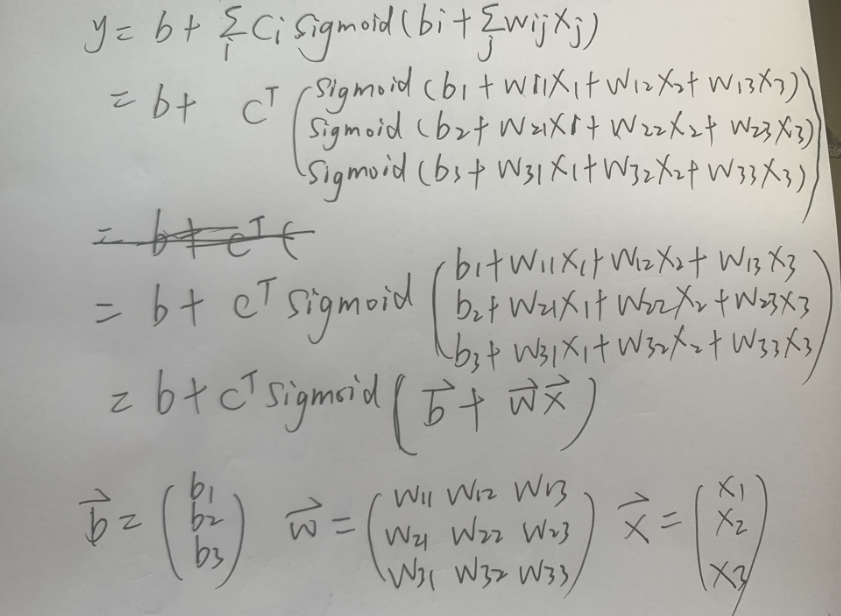 y = b + Σ_i Ci Sigmoid(bi + Σ_j wij xj)
= b + C^T ( Sigmoid (b1 + w11x1 + w12x2 + w13x3)
Sigmoid (b2 + w21x1 + w22x2 + w23x3)
Sigmoid (b3 + w31x1 + w32x2 + w33x3) )
= b + c^T (
= b + C^T Sigmoid ( b1 + w11x1 + w12x2 + w13x3
b2 + w21x1 + w22x2 + w23x3
b3 + w31x1 + w32x2 + w33x3 )
= b + C^T Sigmoid ( b⃗ + w⃗x⃗ )
b⃗ = ( b1 b2 b3 ) w⃗ = ( w11 w12 w13 w21 w22 w23 w31 w32 w33 ) x⃗ = ( x1 x2 x3 )